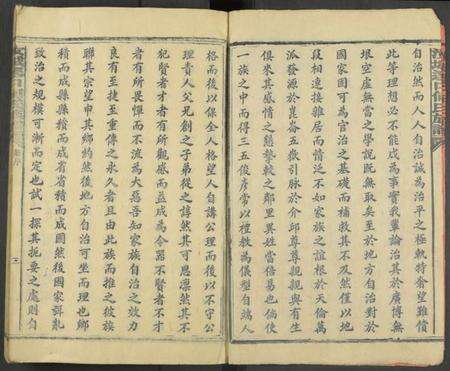 自治然而人人自治誠為治平之極軌特奢望難償
此等理想必不能成為事實我輩論治其於廣博無
垠空虛無當之學說既無取矣至於地方自治對於
國家固可為官治之基礎而補救其不及然僅以地
段相連接雜居而情泛不如家族之誼根於天倫萬
派發源於崑崙五嶽引脈於介邱尊尊親親與有生
俱來其感情之懇摯較之鄰里異姓當倍易也倘使
一族之中而得三五俊彥常以禮教為儀型自端人
格而後以保全人格望人自講公理而後以不守公
理責人父兄之于子弟從之諄然其可思凜然其不
犯賢者才者有所觀感而益成為令器不賢者不才
者有所畏憚而不流為大惡吾知家族自治之效力
良有至捷至重傳之永久者且由此族而推之彼族
聯其宗望申其鄉約然後地方自治可坐而理也鄉
積而成縣縣積而成省省積而成國然後國家郅亂
致治之規模可漸而定也試一探其扼要之處則自